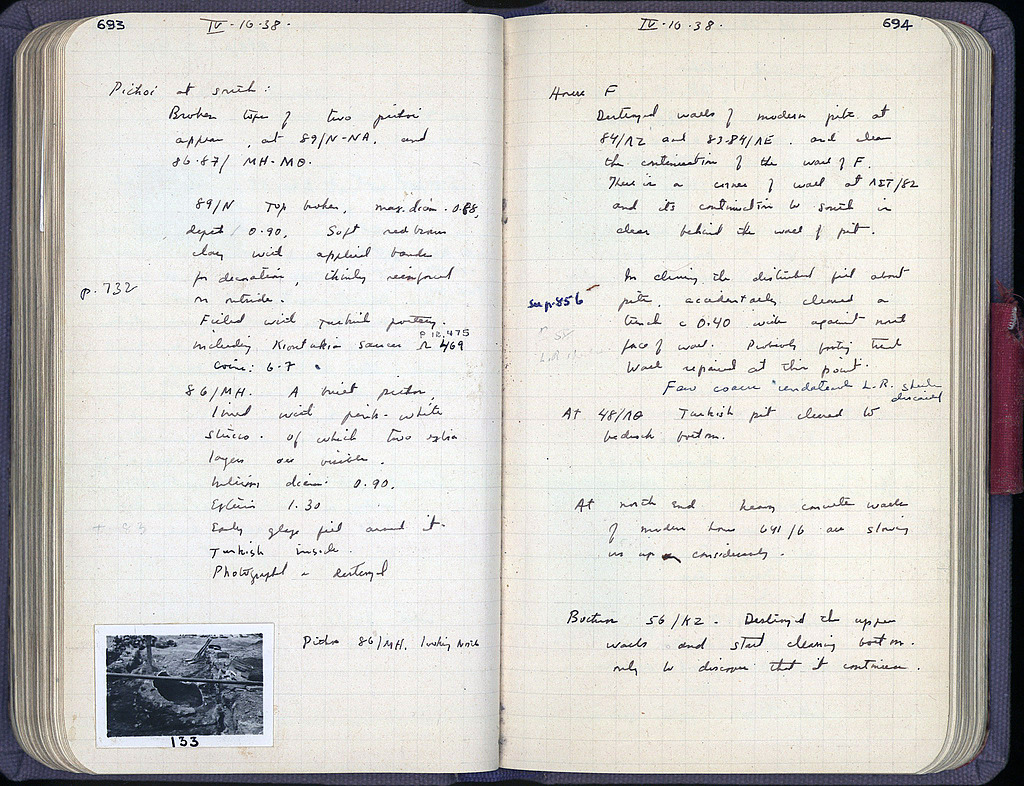 693
IV · 16 · 38 ·
Pithoi at south :
Broken tops of two pithoi
appear, at 89/N-NA, and
86-87/ MH-MΘ.
89/N Top broken, max. diam. 0.88,
depth 0.90, Soft red brown
clay with applied bands
for decoration, thinly reinforced
on outside.
p. 732
Filled with Turkish pottery.
P 12,475
including Kioutahia saucer 469
Coins: 6-7
86/MH. A built pithos,
lined with pink-white
stucco. of which two
layers are visible.
diam: 0.90.
1.30
Early glaze fill around it.
Turkish inside.
Photographed & destroyed
Pithos 86/MH, looking North
133
694
IV · 16 · 38 ·
House F
Destroyed walls of modern pits at
84/ΛZ and 83-84/ΛE. and clear
the continuation of the wall of F.
There is a corner of wall at /82
and its continuation to south is
clear behind the wall of pit.
In cleaning the disturbed fill about
See p. 856
pits, accidentally cleaned a
trench c 0.40 wide against north
face of wall. Probably footing trench
wall repaired at this point.
Few coarse L.R. sherds
discarded
At 48/ΛΘ Turkish pit cleared to
bedrock bottom.
At north end heavy concrete walls
of modern house 641/6 are slowing
us up considerably.
Bothros 56/KZ - Destroyed the upper
walls and start cleaning bottom.
only to discover that it continues.